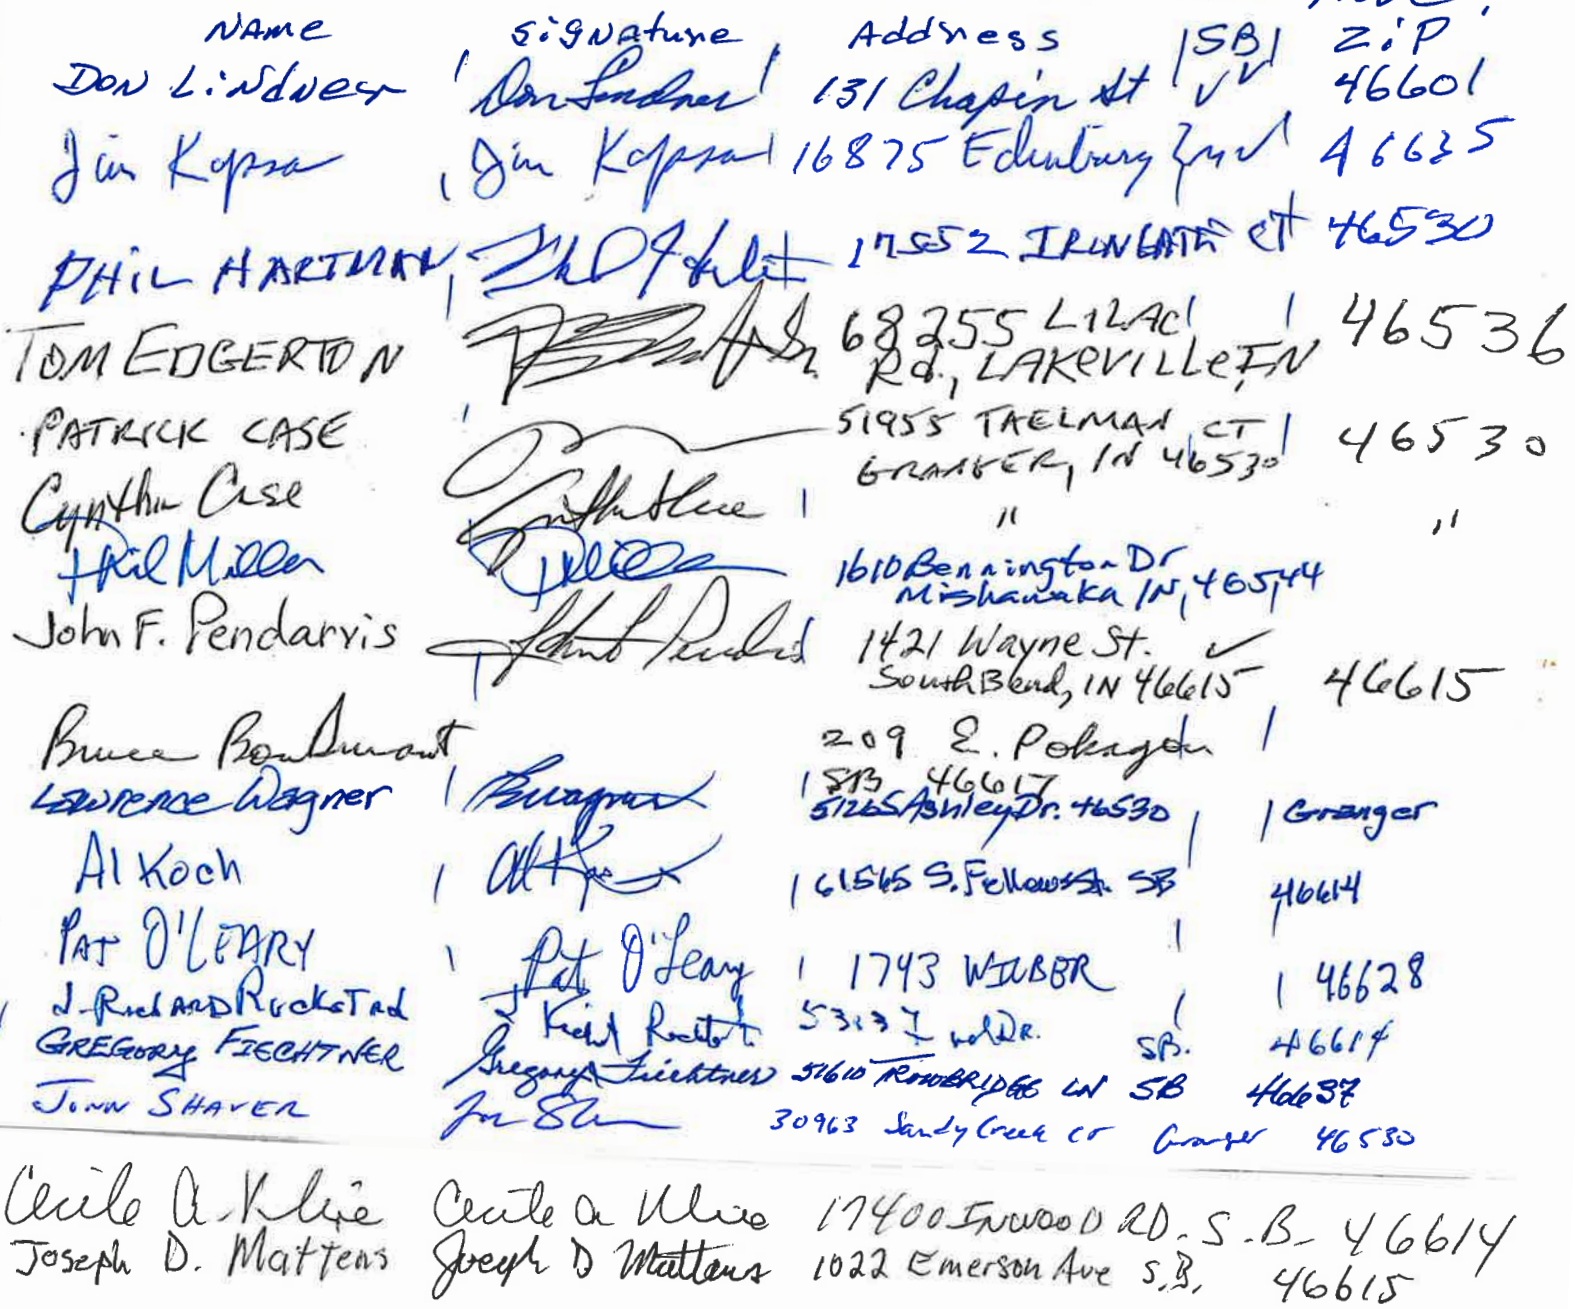 NAME Signature Address SB ZiP
DON LiNdNer Don Lindner 131 Chapin St 46601
Jim Kopsa Jim Kopsa 16875 Edinburg 46635
PHIL HARTMAN 17552 IRONGATE CT 46530
TOM EDGERTON 68255 LILAC 46536
Rd., LAKEVILLE IN
PATRICK CASE 51955 TAELMAN CT 46530
GRANGER, IN 46530
Cynthia Case Cynthia Case " "
Phil Miller 1610 Bennington Dr
Mishawaka IN, 46544
John F. Pendarvis John F Pendarvis 1421 Wayne St.
South Bend, IN 46615 46615
Bruce BonDurant 209 E. Pokagon
SB 46617
Lawrence Wagner 51265 Ashley Dr. 46530 Granger
Al Koch Al Koch 61565 S. Fellows St. SB 46614
PAT O'LEARY Pat O'Leary 1743 WILBER 46628
J. RichARD RucksTad Dr. SB. 46614
GREGORY FIECHTNER Gregory Fiechtner 51610 TROWBRIDGE LN SB 46637
JOHN SHAVER 30963 Sandy Creek CT Granger 46530
Cecile A. Klise Cecile A Klise 17400 INWOOD RD. S.B. 46614
Joseph D. Mattens Joseph D Mattens 1022 Emerson Ave S.B. 46615